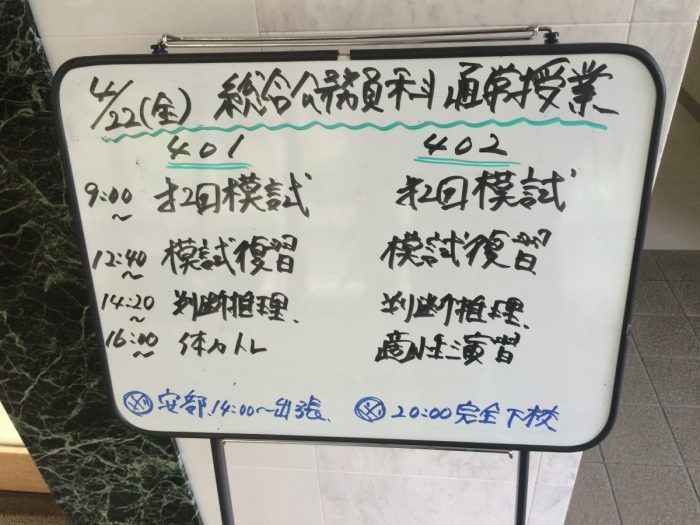 4/22(金) 総合公務員科 通常授業
401 402
9:00～ 才2回模試 才2回模試
12:40～ 模試復習 模試復習
14:20～ 判断推理 判断推理
16:00～ 体力トレ 適性演習
安部 14:00～出張 20:00完全下校